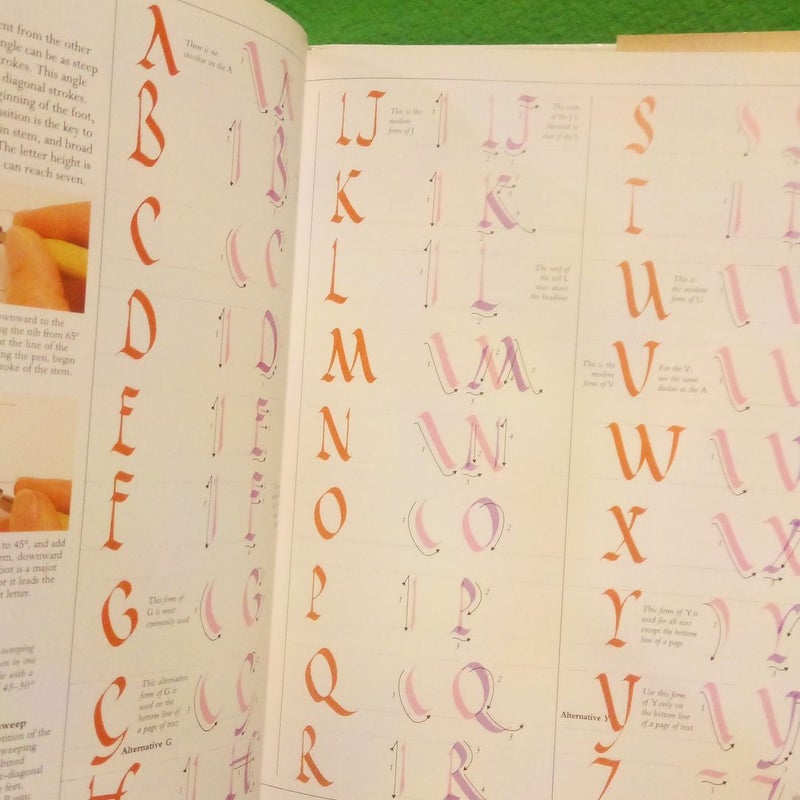 ent from the other
ngle can be as steep
rokes. This angle
diagonal strokes.
ginning of the foot,
osition is the key to
in stem, and broad
The letter height is
can reach seven.
ownward to the
ng the nib from 65°
at the line of the
ng the pen, begin
roke of the stem.
to 45°, and add
rm, downward
oot is a major
or it leads the
letter.
sweeping
en in one
he with a
45–50°
weep
etition of the
sweeping
bined
e-diagonal
e feet,
A
There is no
crossbar on the A
B
C
D
E
F
G
This form of
G is most
commonly used
G
This alternative
form of G is
used on the
bottom line of
a page of text
Alternative G
H
IJ
This is the
modern
form of J
The stem
of the J is
identical to
that of the I
K
L
The serif of
the tall L
rises above
the headline
M
N
O
P
Q
R
S
T
U
This is
the modern
form of U
This is the
modern
form of V
V
For the V,
use the same
ductus as the A
W
X
Y
This form of Y is
used for all text
except the bottom
line of a page
Y
Alternative Y
Use this form
of Y only on
the bottom line
of a page of text
Z